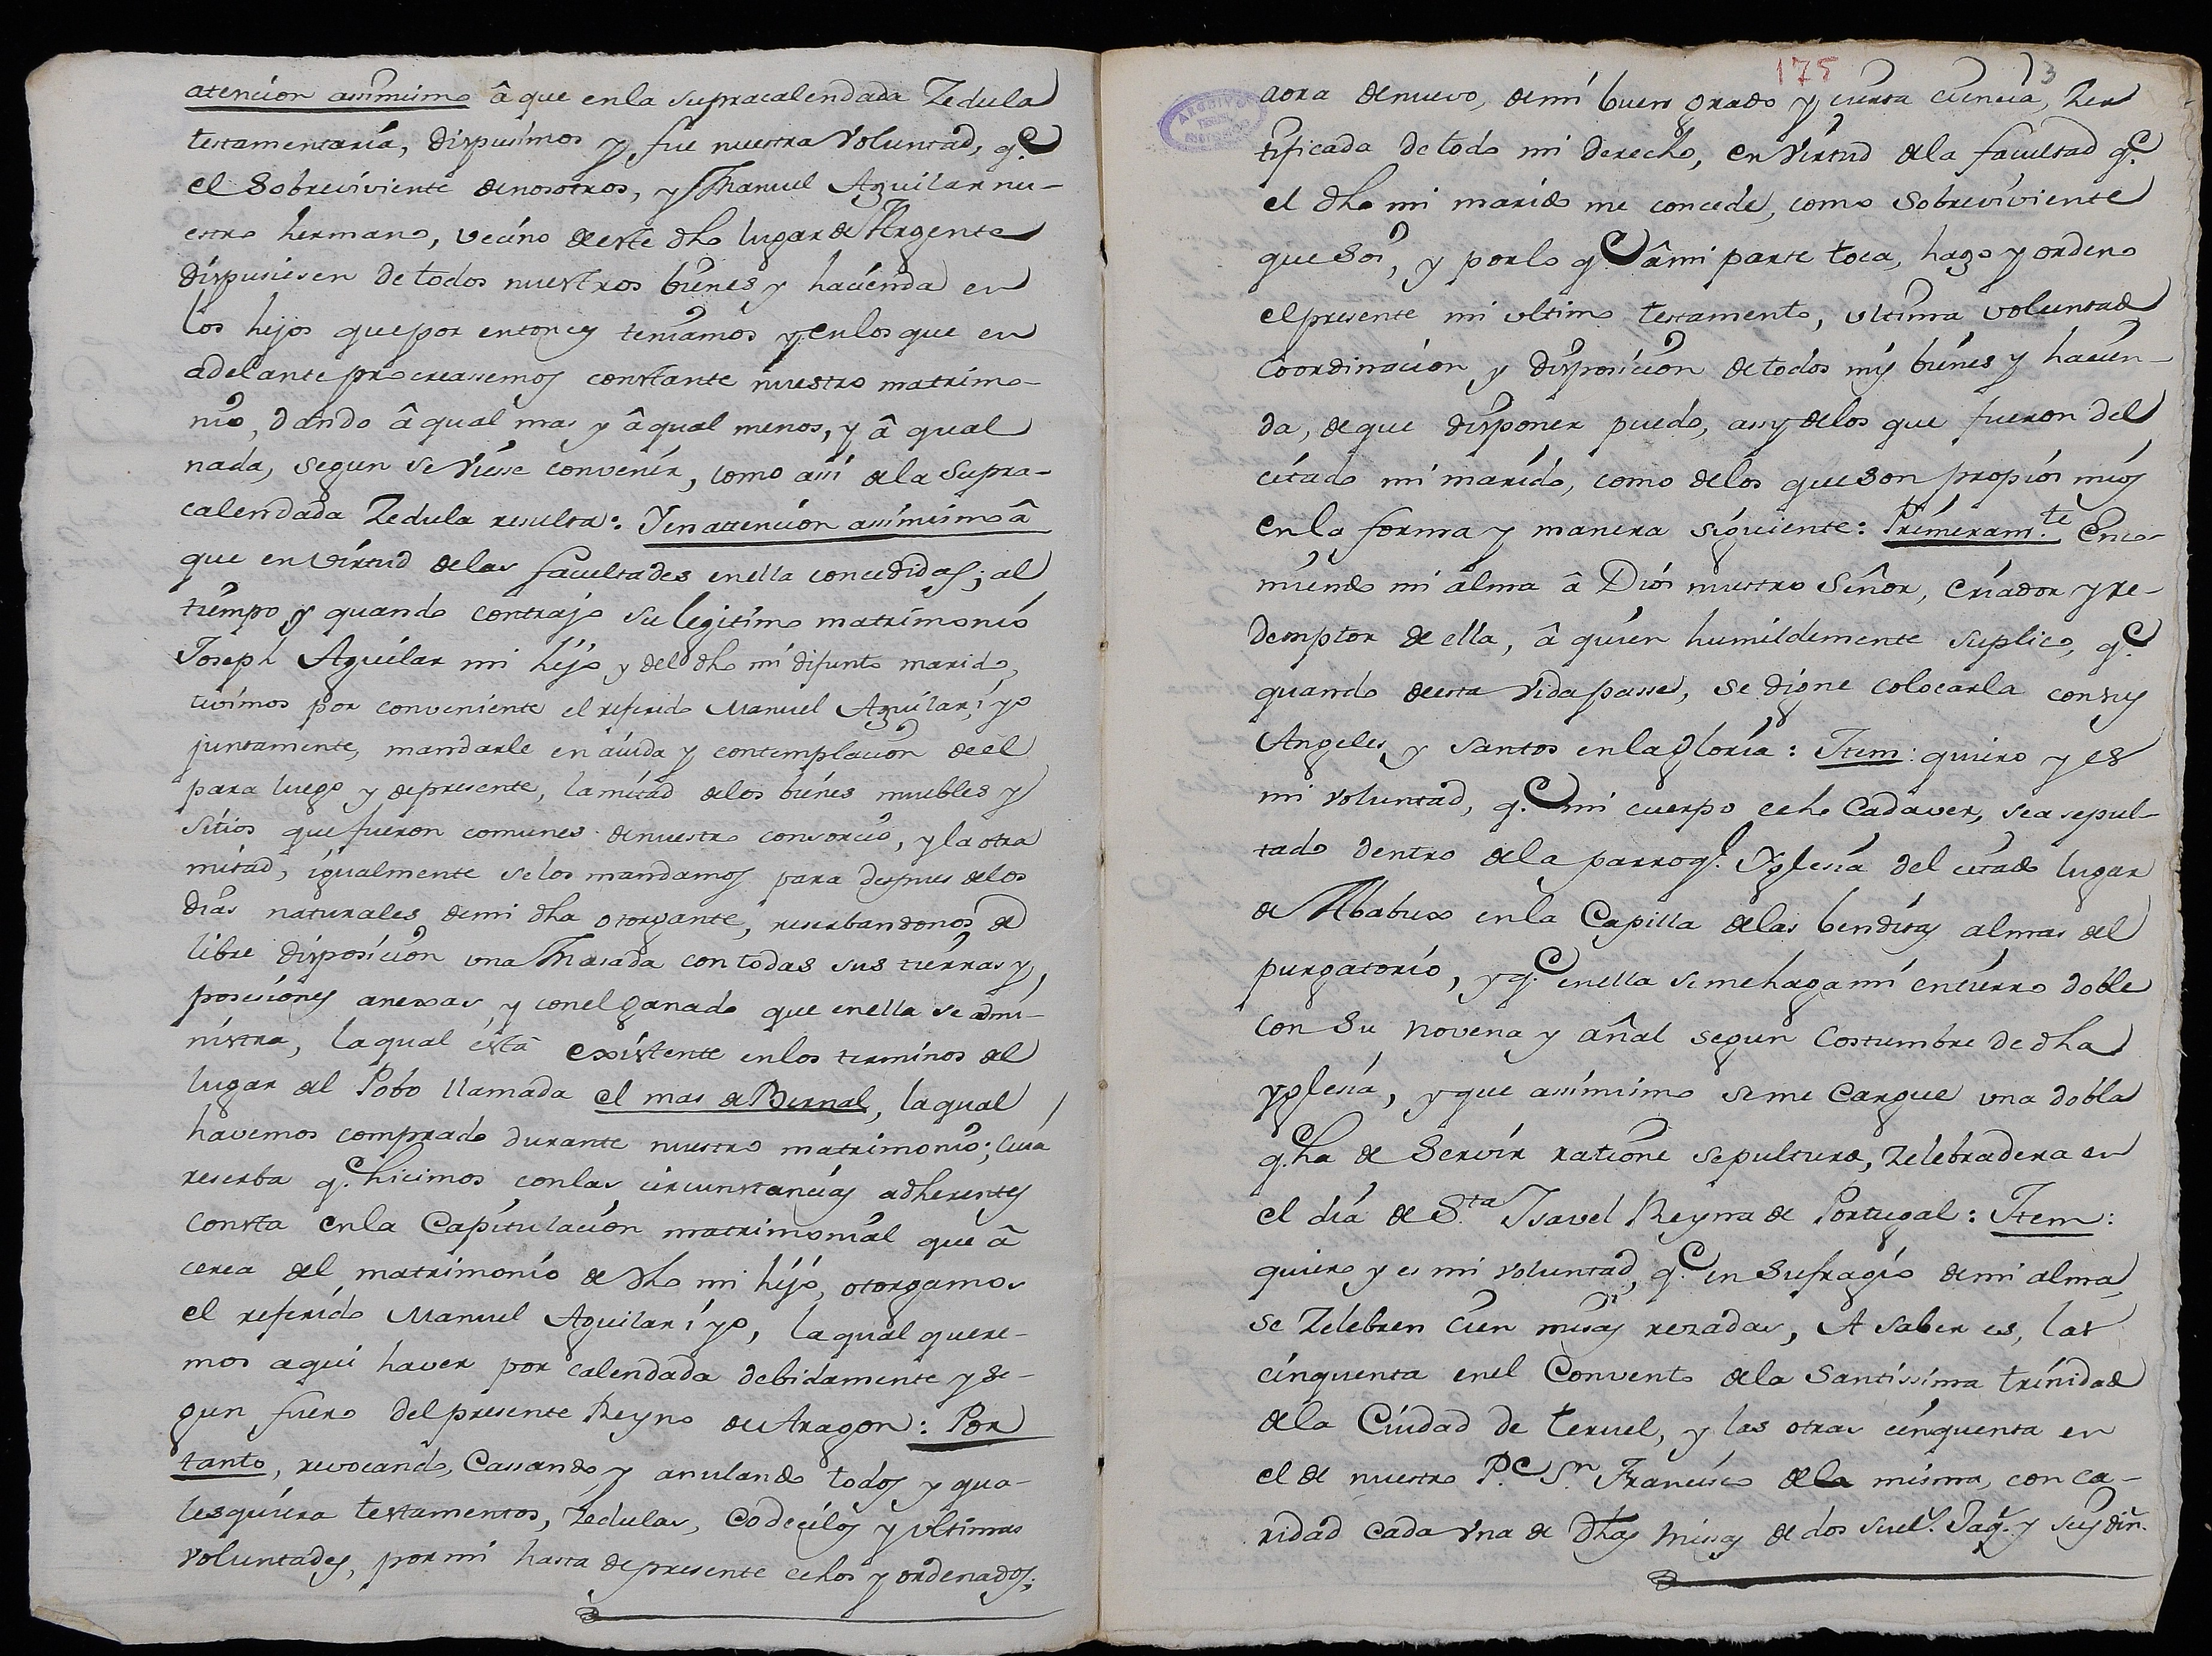 atencion assimismo â que enla supracalendada Zedula
testamentaria, dispusimos y fue nuestra Voluntad, q.e
el Sobreviviente denosotros, y Manuel Aguilar nu-
estro hermano, vecino deeste dho lugar de Argente
dispusiesen de todos nuestros bienes y hacienda en
los hijos quepor entonces teniamos y enlos que en
adelante procreassemos constante nuestro matrimo-
nio, dando â qual mas y â qual menos, y â qual
nada, segun se viesse convenir, como assi dela Supra-
calendada Zedula resulta: Yenattencion assimismo â
que en virtud delas facultades enella concedidas; al
tiempo y quando contrajo su legitimo matrimonio
Joseph Aguilar mi hijo y del dho mi difunto marido,
tuvimos por conveniente el referido Manuel Aguilar, i yo
juntamente, mandarle en aiuda y contemplacion de él
para luego y depresente, lamitad delos bienes muebles y
sitios que fueron comunes denuestro consorcio, y la otra
mitad, igualmente selos mandamos para despues delos
dias naturales demi dha otorgante, reserbandonos de
libre disposicion una Masada con todas sus tierras y
posesiones anexas, y conel ganado que enella se admi-
nistra, laqual está existente enlos terminos del
lugar del Pobo llamada el mas de Bernal, laqual
havemos comprado durante nuestro matrimonio; cuia
reserba q.e hicimos conlas circunstancias adherentes
consta enla Capitulacion matrimonial que â
cerca del matrimonio de dho mi hijo, otorgamos
el referido Manuel Aguilar i yo, laqual quere-
mos aqui haver por calendada debidamente y se-
gun fuero delpresente Reyno de Aragon: Por
tanto, revocando, Cassando, y anulando todos y qua-
lesquiera testamentos, Zedulas, Codecilos y ultimas
voluntades, por mi hasta depresente echos y ordenados;
175
3
aora denuevo, demi buen grado y cierta ciencia, Zer
tificada de todo mi derecho, en virtud dela facultad q.e
el dho mi marido me concede, como Sobreviviente
que Soi, y porlo q.e âmi parte toca, hago y ordeno
elpresente mi ultimo testamento, ultima voluntad
coordinacion y disposicion de todos mis bienes y hacien-
da, deque disponer puedo, assy delos que fueron del
citado mi marido, como delos queson propios mios
enla forma y manera siguiente: Primeram.te Enco-
miendo mi alma â Dios nuestro Señor, Criador y re-
demptor de ella, â quien humildemente suplico, q.e
quando deesta Vida passe, se digne colocarla consus
Angeles y Santos enlagloria: Item: quiero y es
mi voluntad, q.e mi cuerpo echo Cadaver, sea sepul-
tado dentro dela parroq.l Yglesia del citado lugar
de Ababux enla Capilla delas benditas almas del
purgatorio, y q.e enella semehaga mi entierro doble
con Su novena y añal segun costumbre de dha
yglesia, y que assimismo seme Cargue una dobla
q.e ha de Servir ratione sepulture, Zelebradera en
el dia de S.ta Isavel Reyna de Portugal: Item:
quiero y es mi voluntad, q.e en Sufragio demi alma
se Zelebren cien misas rezadas, A saber es, las
cinquenta enel Convento dela Santissima trinidad
dela Ciudad de teruel, y las otras cinquenta en
el de nuestro P.e S.n Francisco dela misma, con ca-
ridad cada una de dhas missas de dos suel.s Jaq.s y seis din.